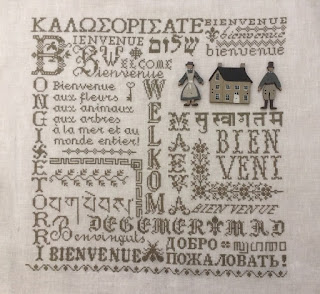 ΚΑΛΩΣΟΡΙΣΑΤΕ
BIENVENUE
bienvenue
bienvenue
BIENVENUE
שלום
WELCOME
Bienvenue
ONGI ETORRI
Bienvenue
aux fleurs
aux animaux
aux arbres
à la mer et au
monde entier!
WELKOM
MAEVA
सुस्वागतम
BIEN
VENI
BIENVENUE
DEGEMER MAD
Benvinguts
BIENVENUE
ДОБРО
ПОЖАЛОВАТЬ!